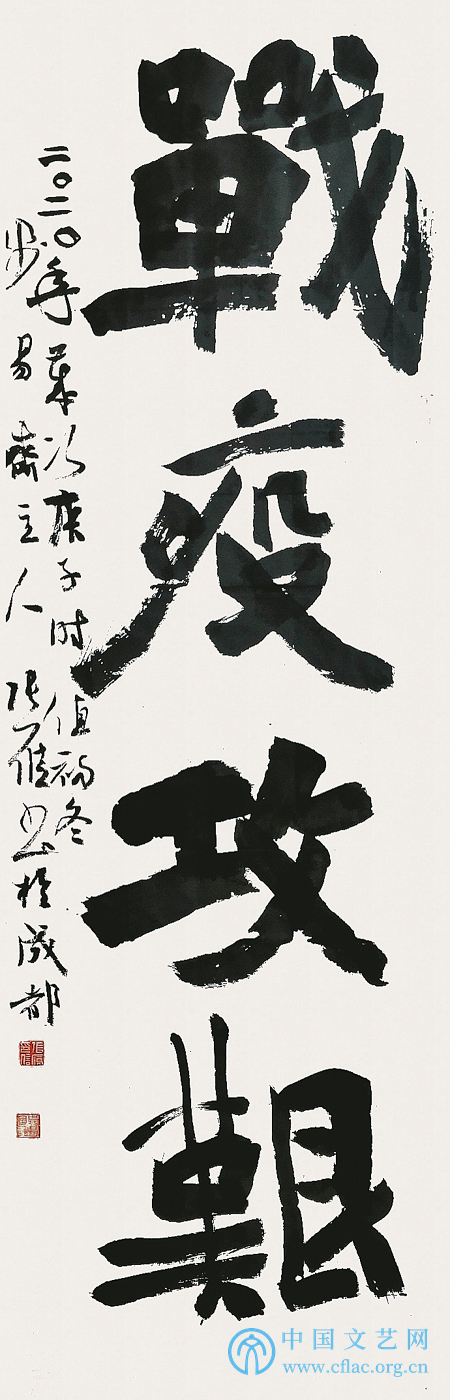 戰疫攻艱
二〇二〇年歲次庚子时值初冬
易齋主人張書於成都
中国文艺网
www.cflac.org.cn